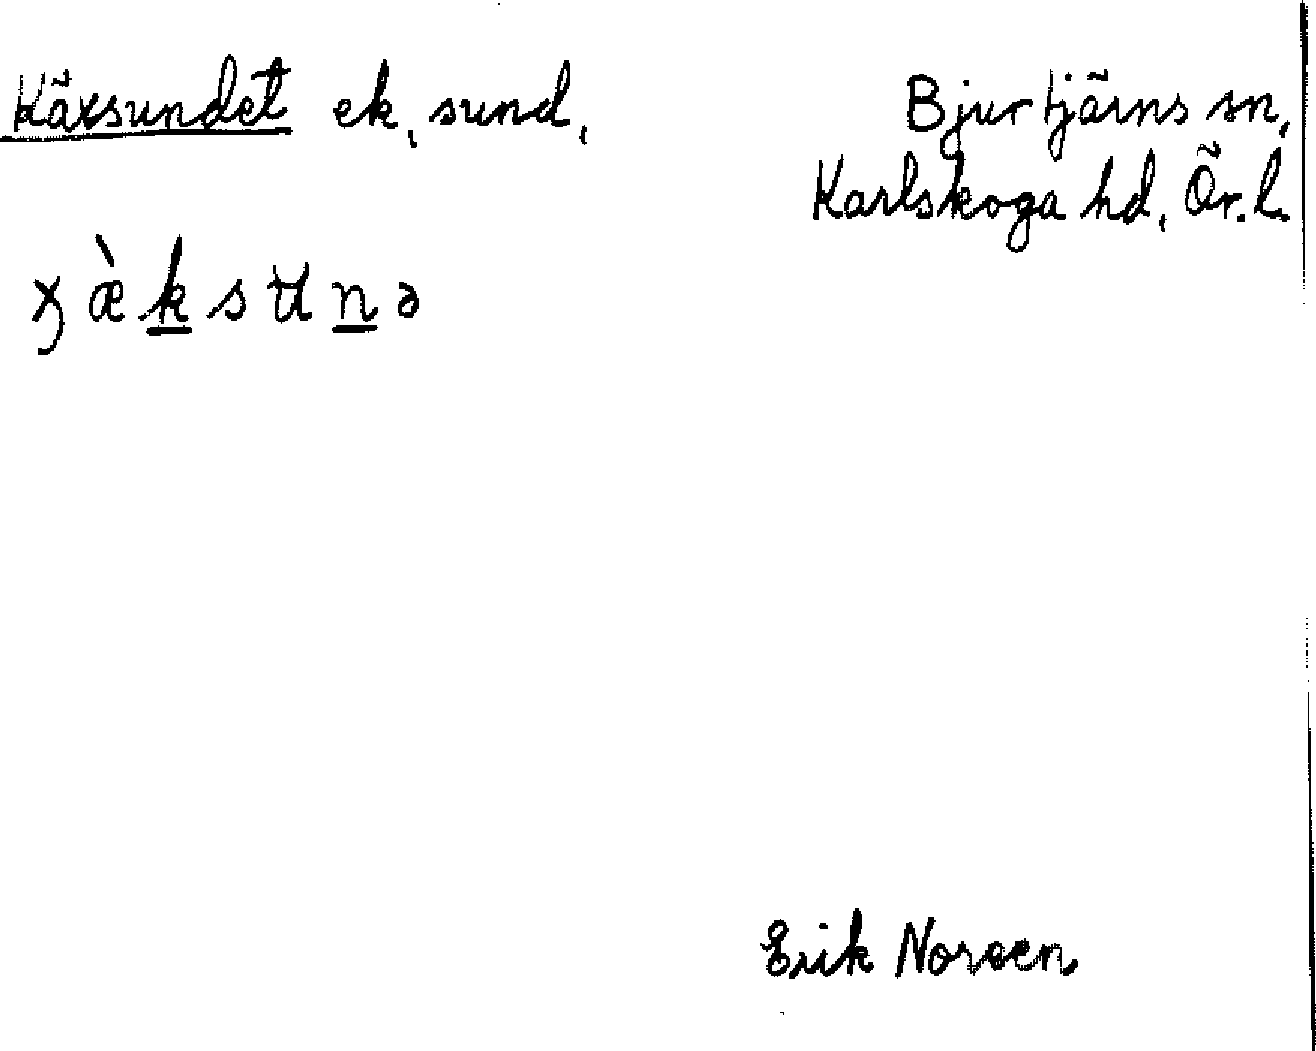 Käxsundet ek, sund,
Bjurtjärns sn,
Karlskoga hd, Ör. l.
ꭓæ̀k̲sʉn̲ə
Erik Noreen